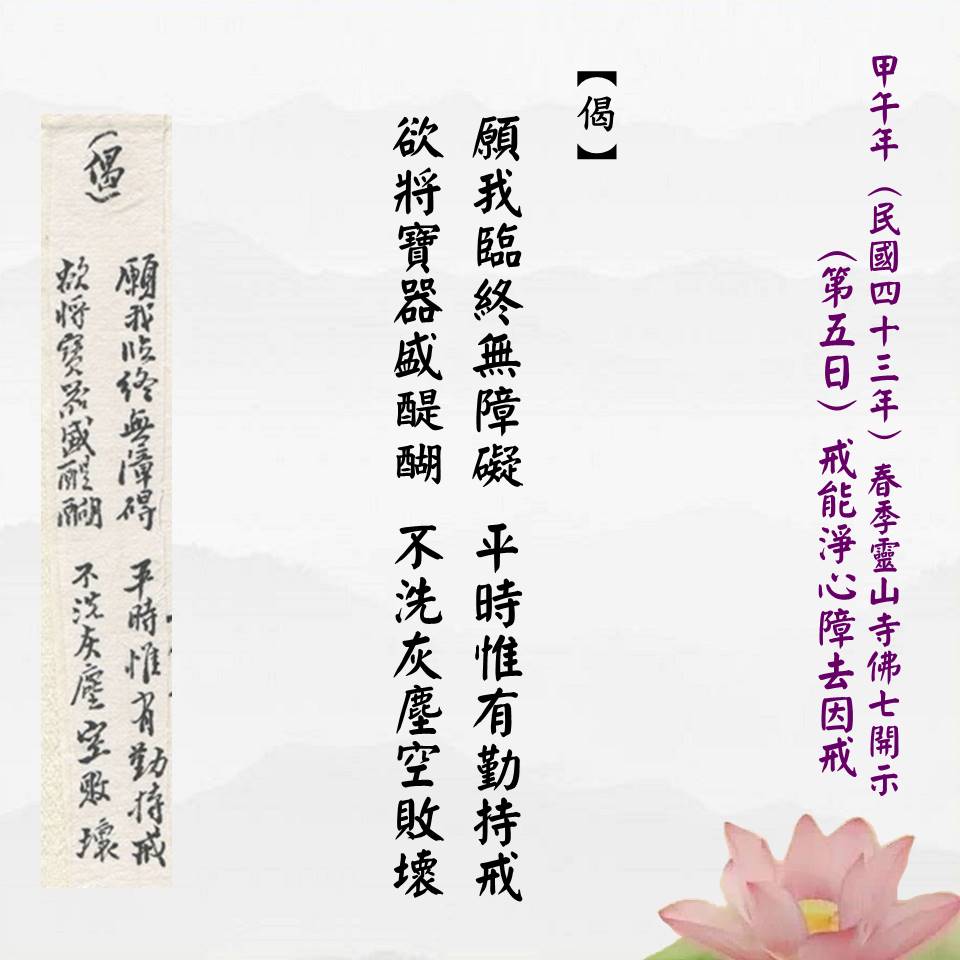 甲午年（民國四十三年）春季靈山寺佛七開示
（第五日）戒能淨心障去因戒
【偈】
願我臨終無障礙 平時惟有勤持戒
欲將寶器盛醍醐 不洗灰塵空敗壞
（偈）
願我臨終無障碍 平時惟有勤持戒
欲將寶器盛醍醐 不洗灰塵空敗壞